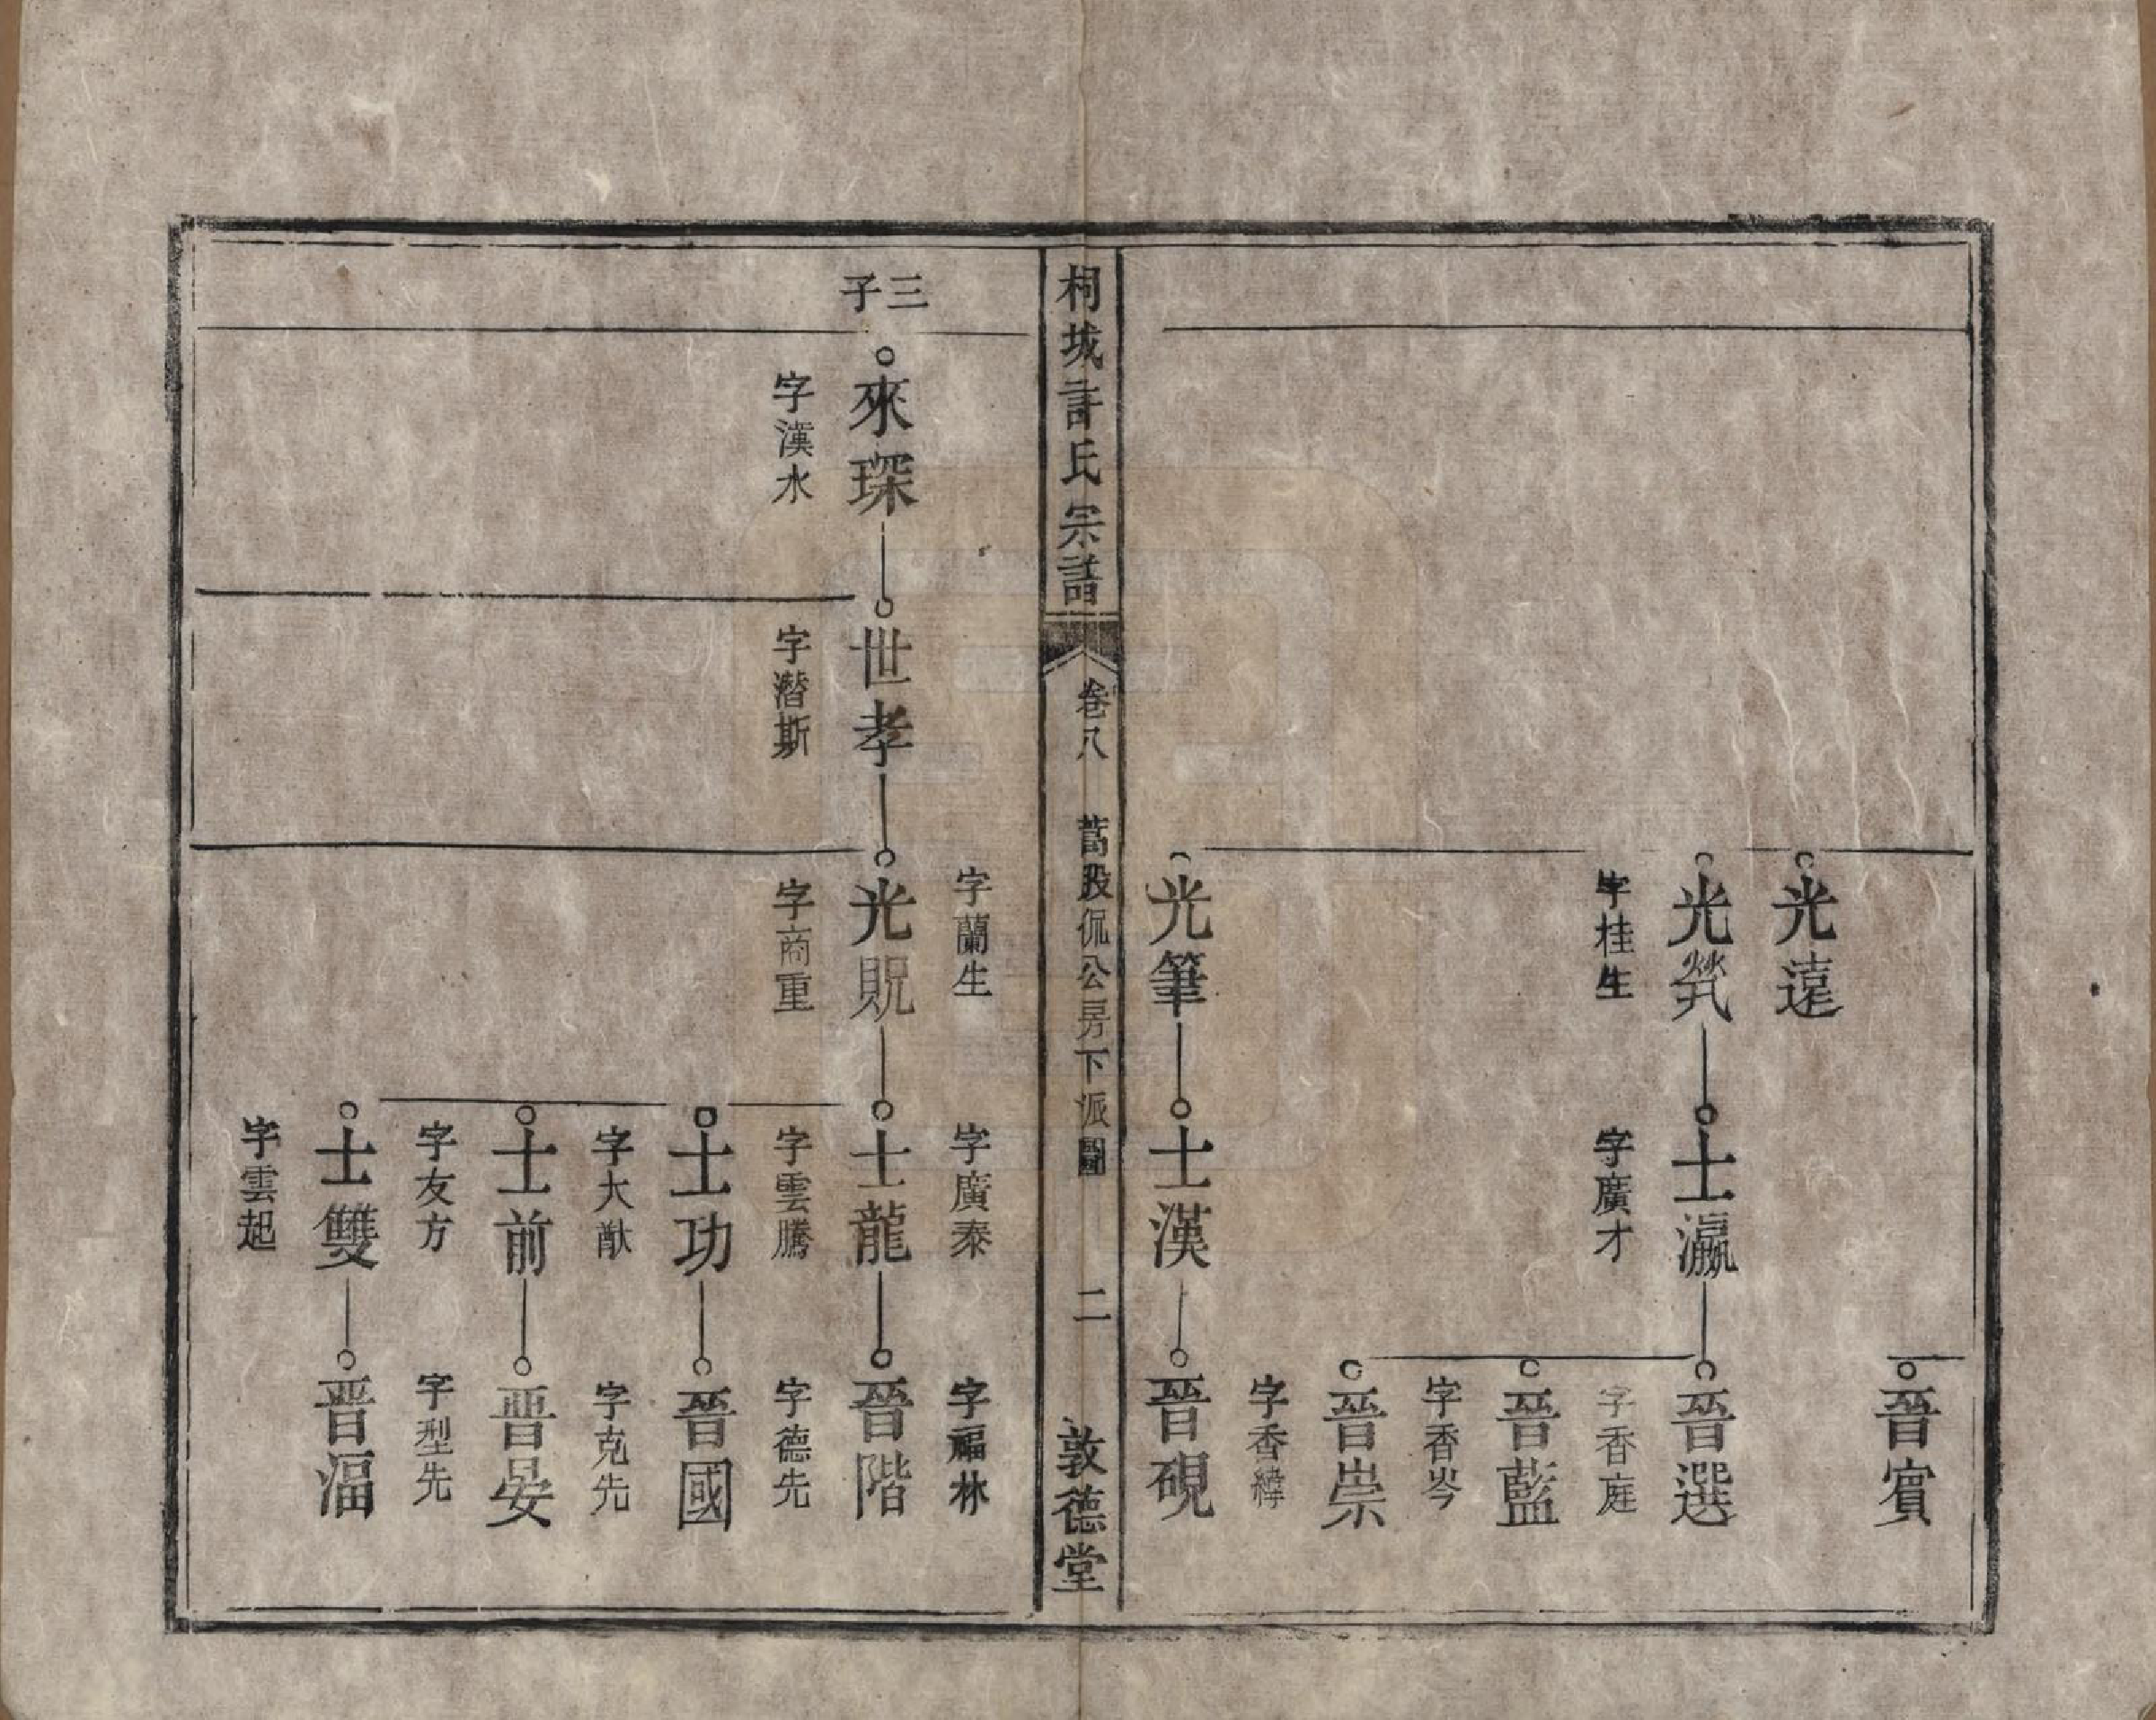 光遠
光煢
字桂生
士瀛
字廣才
晉賓
晉選
字香庭
晉藍
字香岑
晉崇
字香緯
光筆
士漢
晉硯
桐城許氏宗譜
卷八
萵股侃公房下派圖
二
敦德堂
字蘭生
字廣泰
字福林
三子
來琛
字漢水
世孝
字潛斯
光貺
字商重
士龍
字雲騰
晉階
字德先
士功
字大猷
晉國
字克先
士前
字友方
晉晏
字型先
士雙
字雲起
晋湢